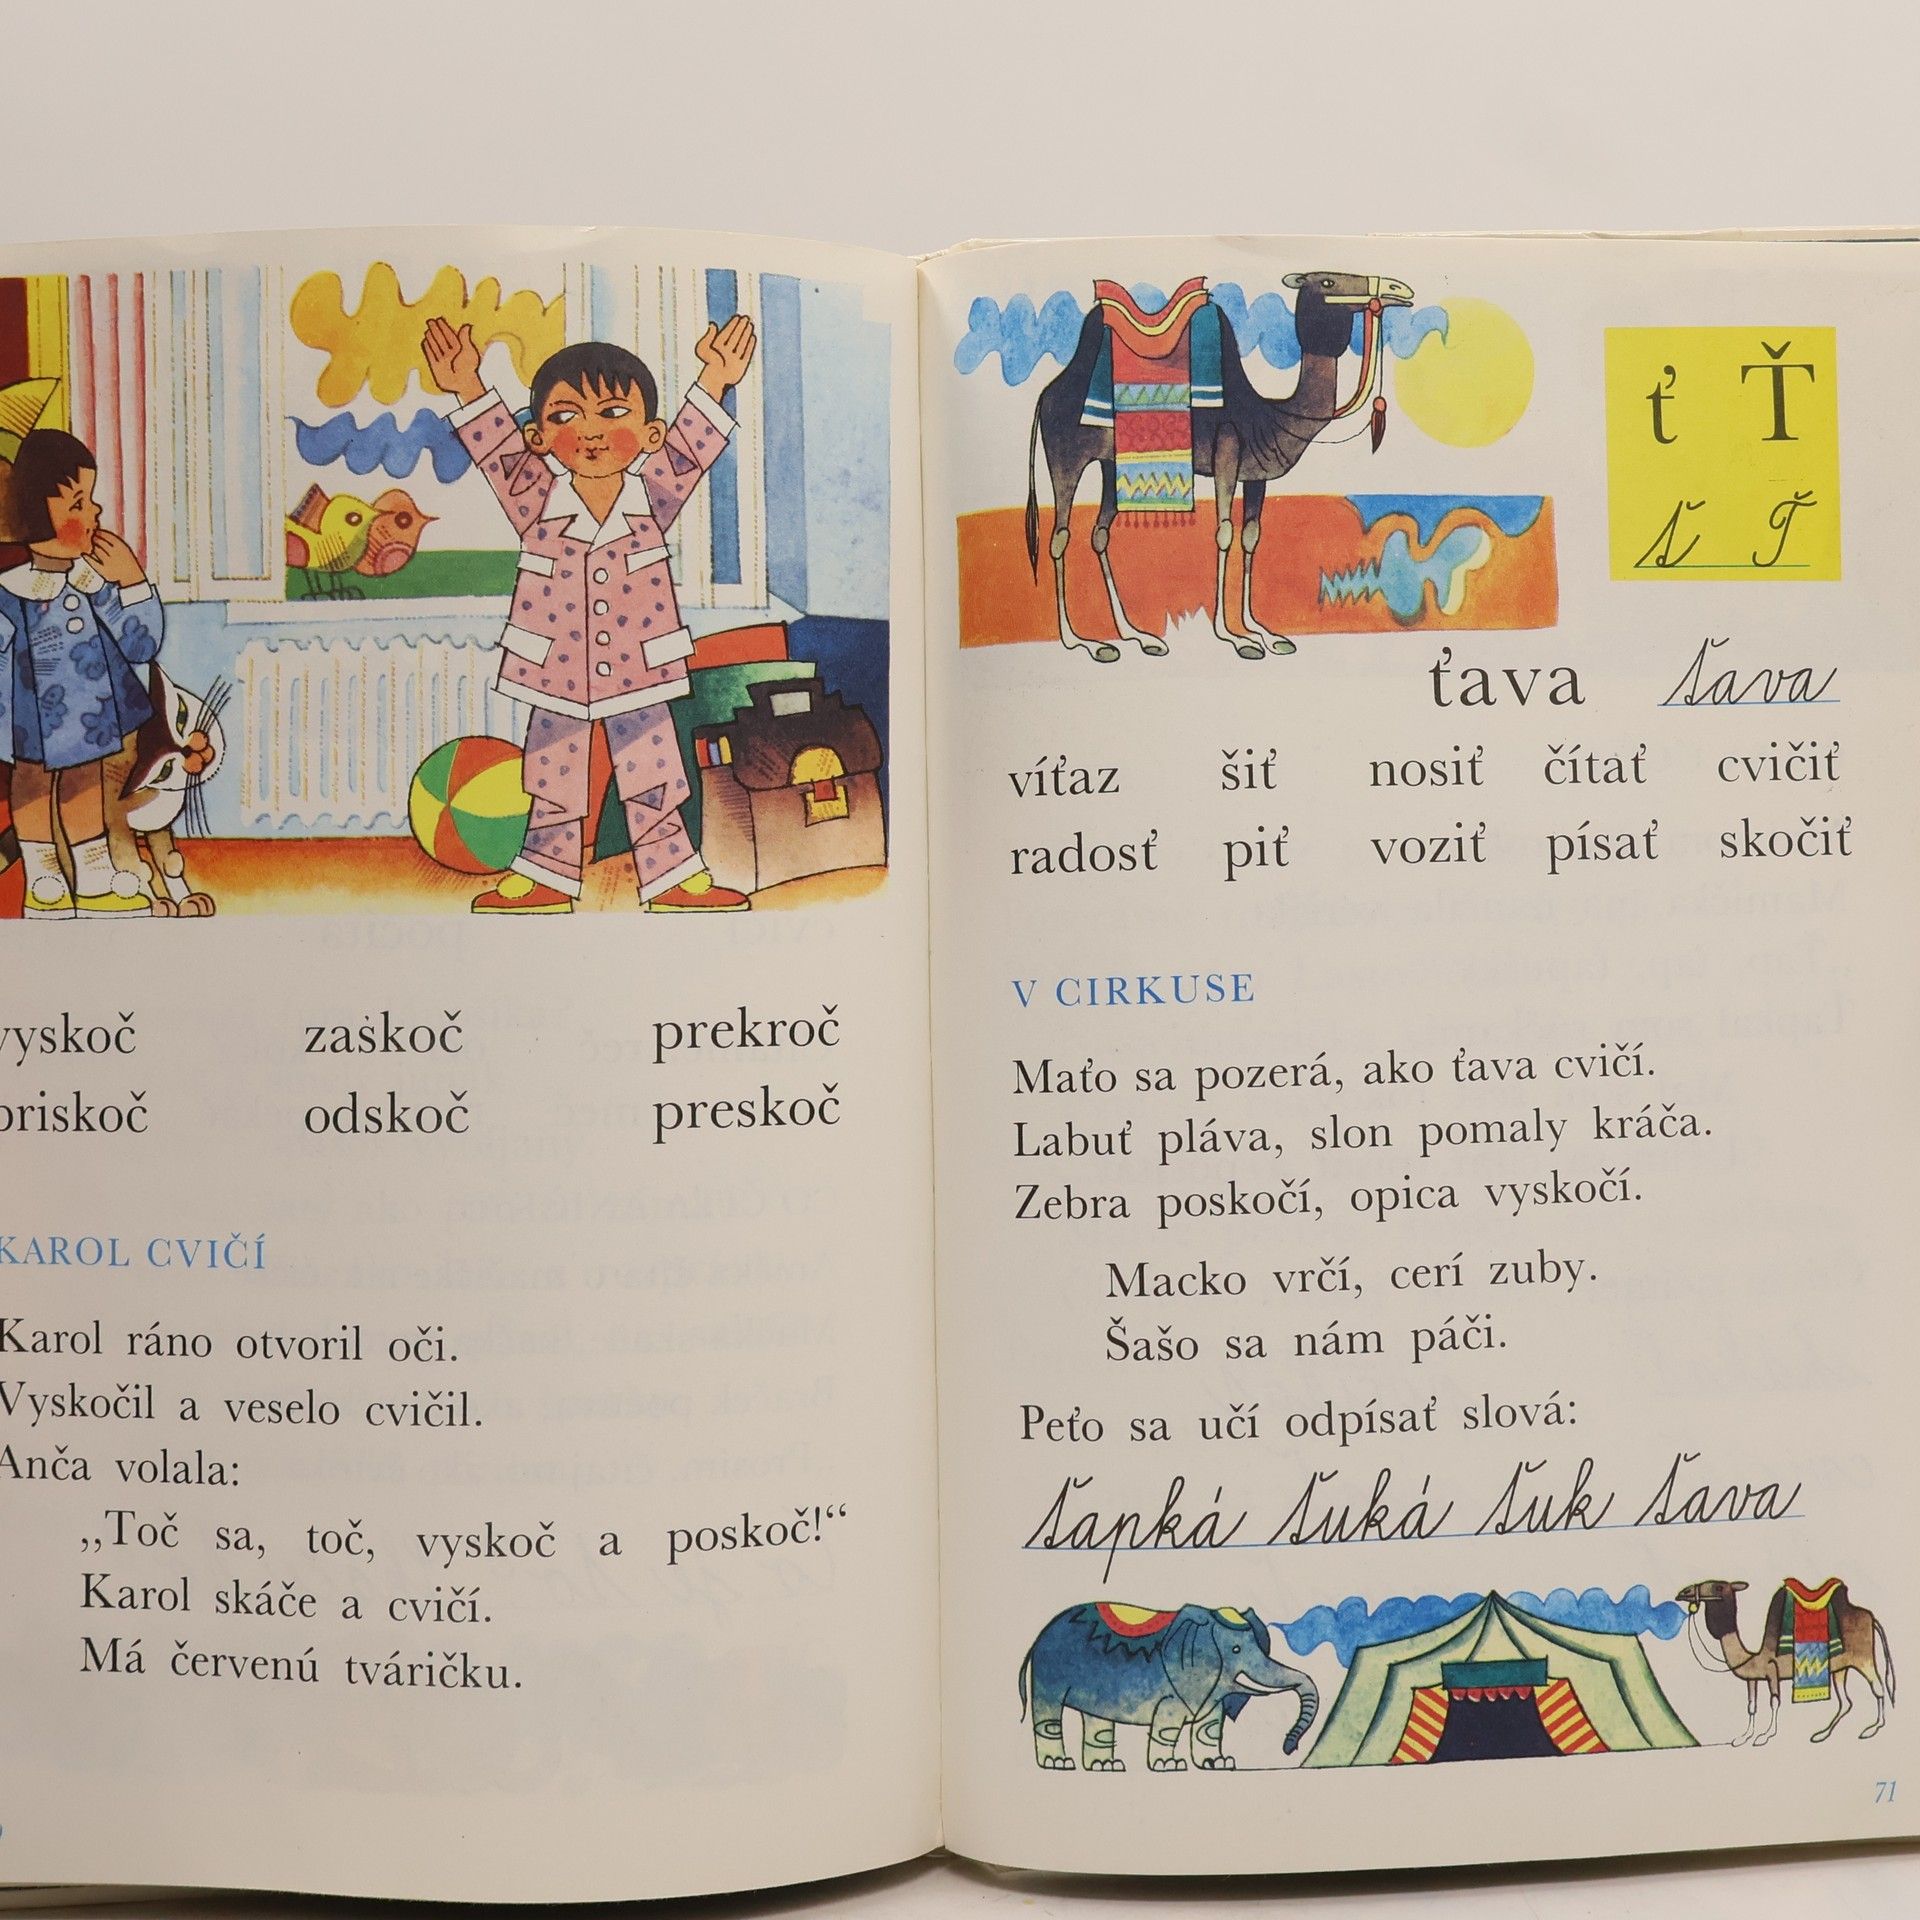 vyskoč zaskoč prekroč
priskoč odskoč preskoč
KAROL CVIČÍ
Karol ráno otvoril oči.
Vyskočil a veselo cvičil.
Anča volala:
„Toč sa, toč, vyskoč a poskoč!“
Karol skáče a cvičí.
Má červenú tváričku.
ť Ť
ť Ť
ťava ťava
víťaz šiť nosiť čítať cvičiť
radosť piť voziť písať skočiť
V CIRKUSE
Maťo sa pozerá, ako ťava cvičí.
Labuť pláva, slon pomaly kráča.
Zebra poskočí, opica vyskočí.
Macko vrčí, cerí zuby.
Šašo sa nám páči.
Peťo sa učí odpísať slová:
ťapká ťuká ťuk ťava
71